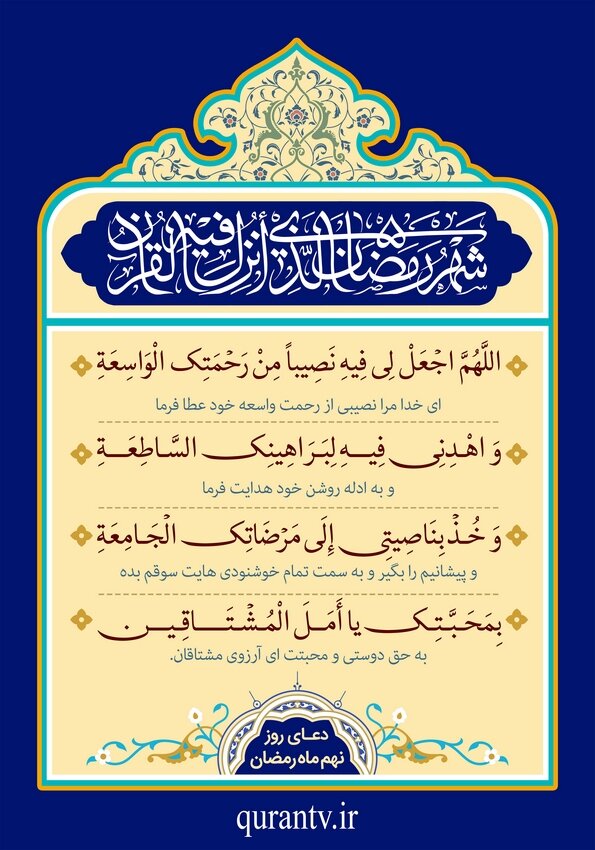 شَهْرُ رَمَضَانَ الَّذِي أُنْزِلَ فِيهِ الْقُرْآنُ
اللَّهُمَّ اجْعَلْ لِی فِیهِ نَصِیباً مِنْ رَحْمَتِک الْوَاسِعَةِ
ای خدا مرا نصیبی از رحمت واسعه خود عطا فرما
وَ اهْدِنِی فِیهِ لِبَرَاهِینِک السَّاطِعَةِ
و به ادله روشن خود هدایت فرما
وَ خُذْ بِنَاصِیتِی إِلَی مَرْضَاتِک الْجَامِعَةِ
و پیشانیم را بگیر و به سمت تمام خوشنودی هایت سوقم بده
بِمَحَبَّتِک یا أَمَلَ الْمُشْتَاقِینَ
به حق دوستی و محبتت ای آرزوی مشتاقان.
دعای روز
نهم ماه رمضان
qurantv.ir